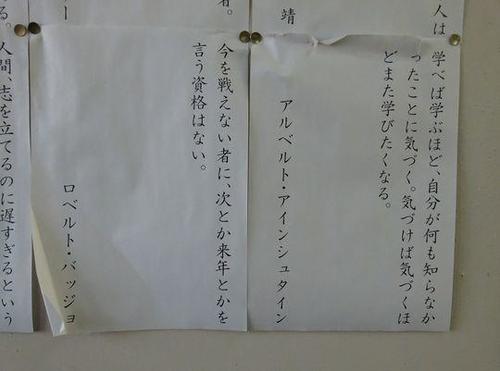 人は
学べば学ぶほど、自分が何も知らなか
ったことに気づく。気づけば気づくほ
どまた学びたくなる。
アルベルト・アインシュタイン
靖
者。
今を戦えない者に、次とか来年とかを
言う資格はない。
ロベルト・バッジョ
ー
る。人間、志を立てるのに遅すぎるという